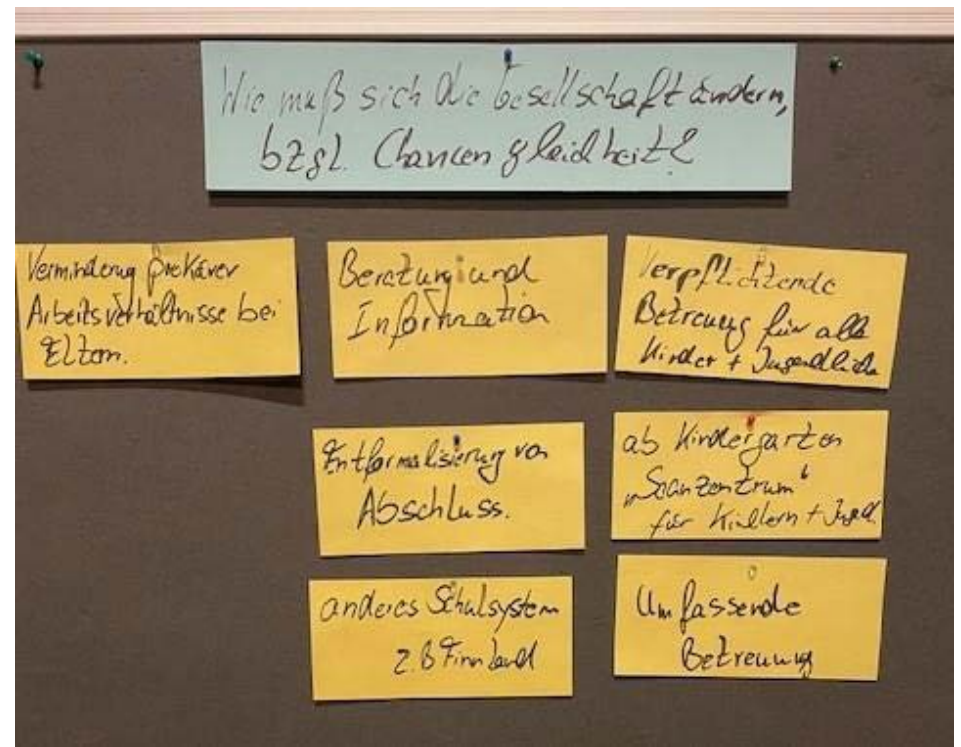 Wie muß sich die Gesellschaft ändern,
bzgl. Chancengleichheit?
Verminderung prekärer
Arbeitsverhältnisse bei
Eltern.
Beratung und
Information
Verpflichtende
Betreuung für alle
Kinder + Jugendliche
Entformalisierung von
Abschluss.
ab Kindergarten
für Kindern + Jugendl.
anderes Schulsystem
z.B Finnland
Umfassende
Betreuung